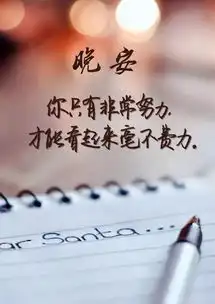 晚安
你只有非常努力
才能看起来毫不费力。
ar Santa....